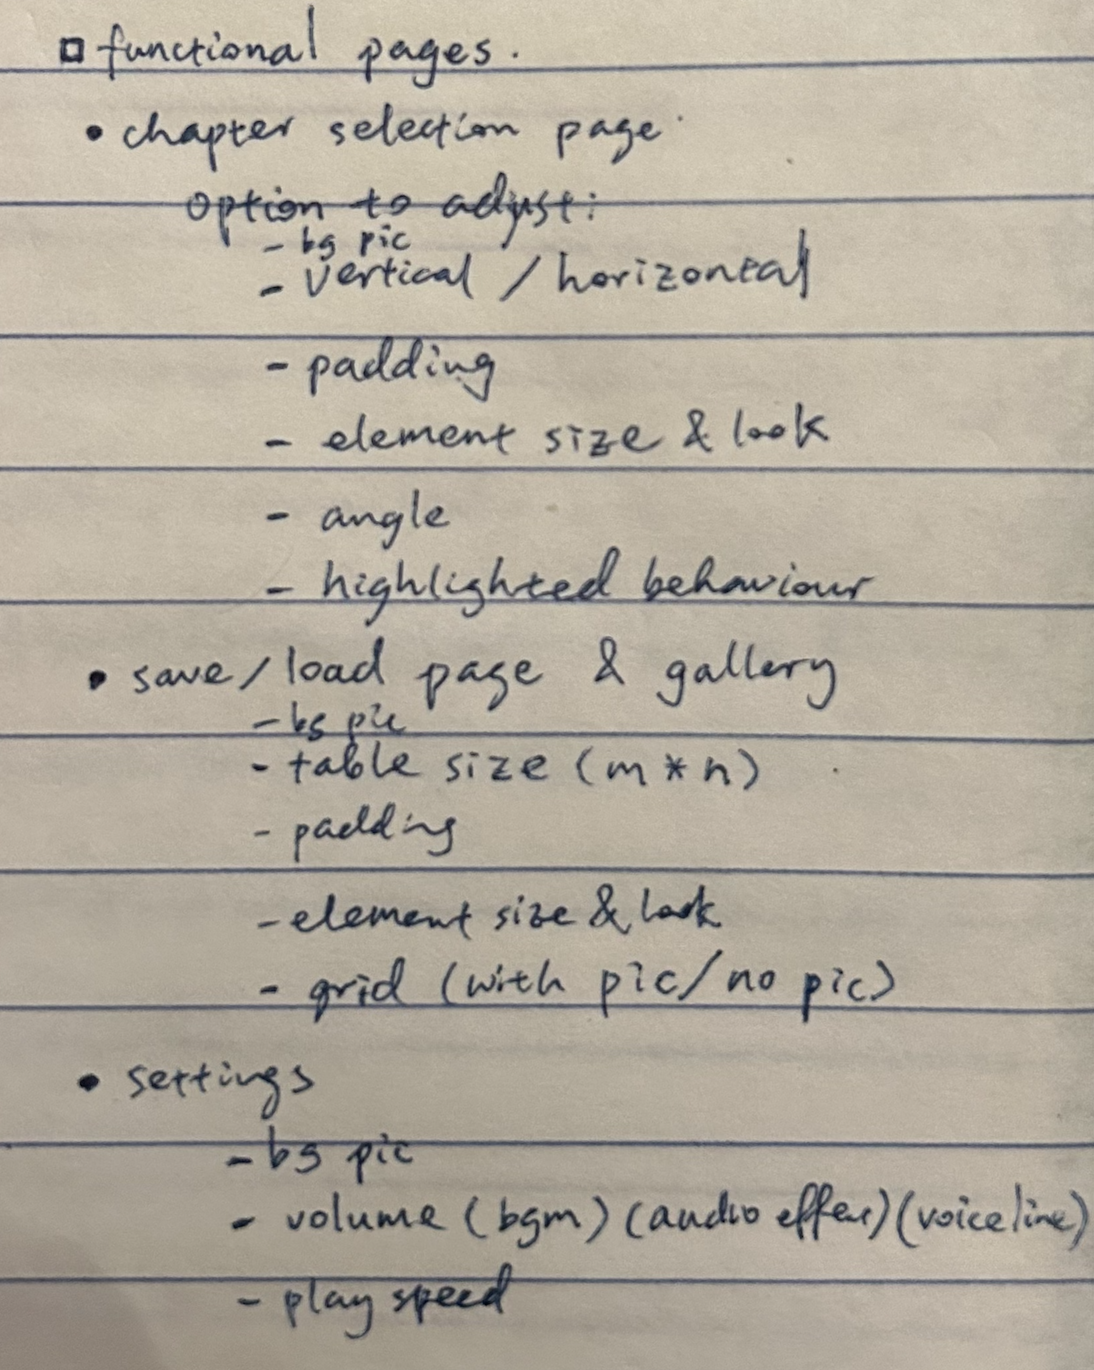 □ functional pages.
• chapter selection page
option to adjust:
- bg pic
- vertical / horizontal
- padding
- element size & look
- angle
- highlighted behaviour
• save/load page & gallery
- bg pic
- table size (m*n)
- padding
- element size & look
- grid (with pic/no pic)
• settings
- bg pic
- volume (bgm) (audio effect) (voiceline)
- play speed